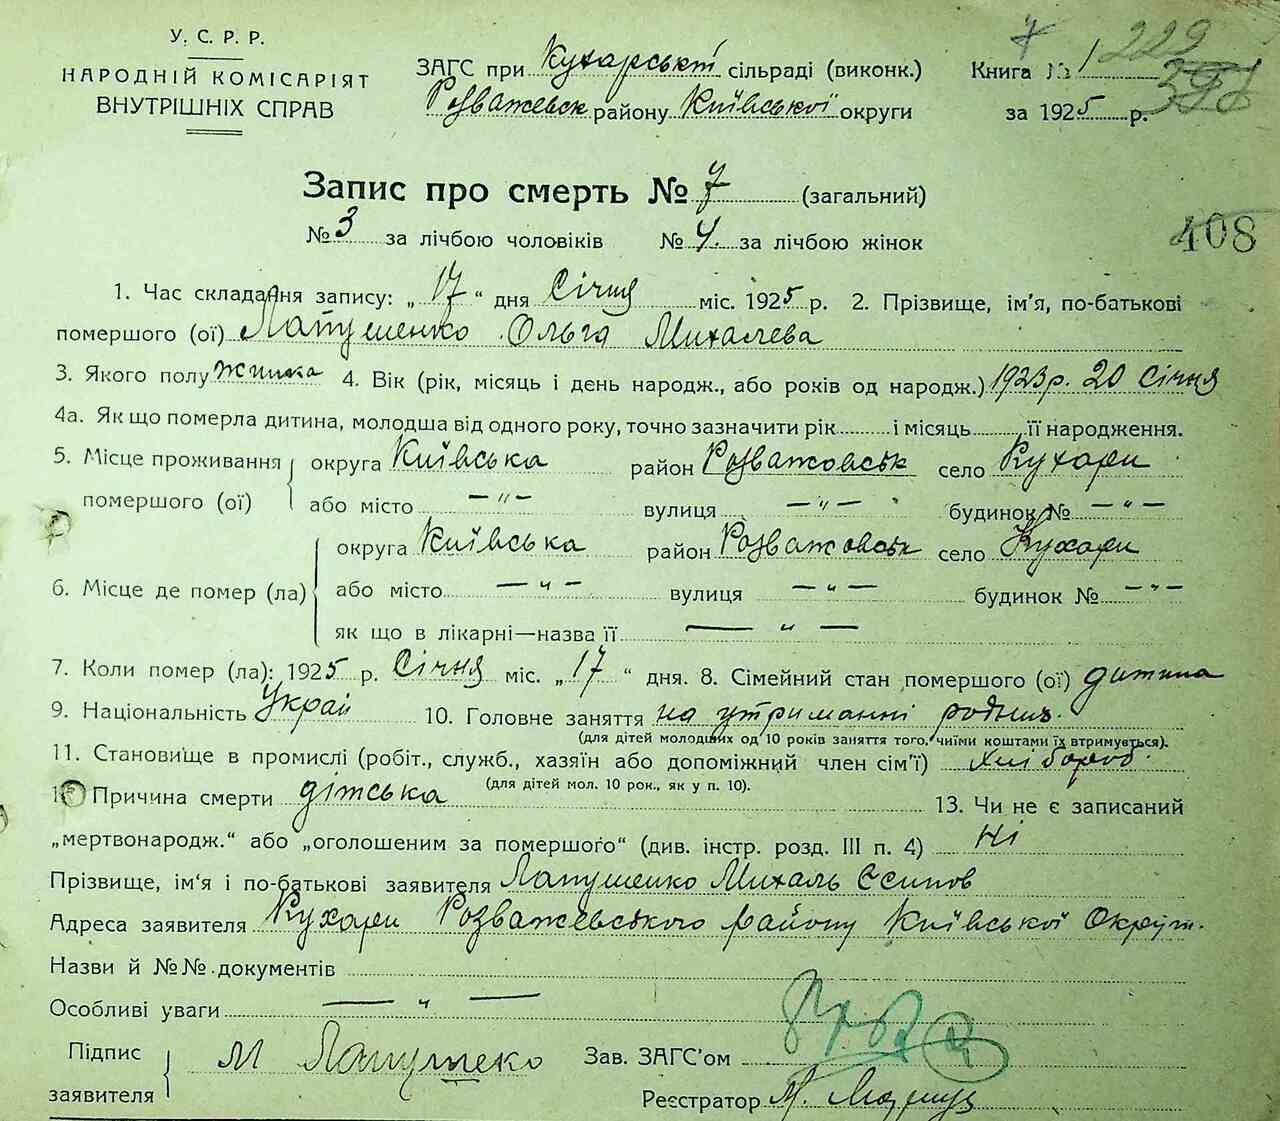 У. С. Р. Р.
НАРОДНІЙ КОМІСАРІЯТ
ВНУТРІШНІХ СПРАВ
ЗАГС при Кухарській сільраді (виконк.)
Розважевськ району Київської округи
Книга № 1 229
за 1925 р.
Запис про смерть № 7 (загальний)
№ 3 за лічбою чоловіків № 4. за лічбою жінок
408
1. Час складання запису: „ 17 “ дня Січня міс. 1925 р. 2. Прізвище, ім'я, по-батькові
помершого (ої) Лапушенко Ольга Михалева
3. Якого полу жинка 4. Вік (рік, місяць і день народж., або років од народж.) 1923 р. 20 Січня
4а. Як що померла дитина, молодша від одного року, точно зазначити рік і місяць її народження.
5. Місце проживання помершого (ої) округа Київська район Розважовськ село Кухари
або місто — " — вулиця — " — будинок № — " —
6. Місце де помер (ла) округа Київська район Розважовськ село Кухари
або місто — " — вулиця — " — будинок № — " —
як що в лікарні—назва її — " —
7. Коли помер (ла): 1925 р. Січня міс. „ 17 “ дня. 8. Сімейний стан помершого (ої) дитина
9. Національність Украй 10. Головне заняття на утриманні родних.
(для дітей молодших од 10 років заняття того, чиїми коштами їх втримується).
11. Становище в промислі (робіт., служб., хазяїн або допоміжний член сім'ї) хлибороб.
(для дітей мол. 10 рок., як у п. 10).
12 Причина смерти дітська 13. Чи не є записаний
„мертвонародж.“ або „оголошеним за помершого“ (див. інстр. розд. III п. 4) Ні
Прізвище, ім'я і по-батькові заявителя Лапушенко Михаль Єсипов
Адреса заявителя Кухари Розважевського району Київської Округи.
Назви й №№ документів
Особливі уваги — " —
Підпис заявителя М Лапушеко
Зав. ЗАГС'ом
Реєстратор М.